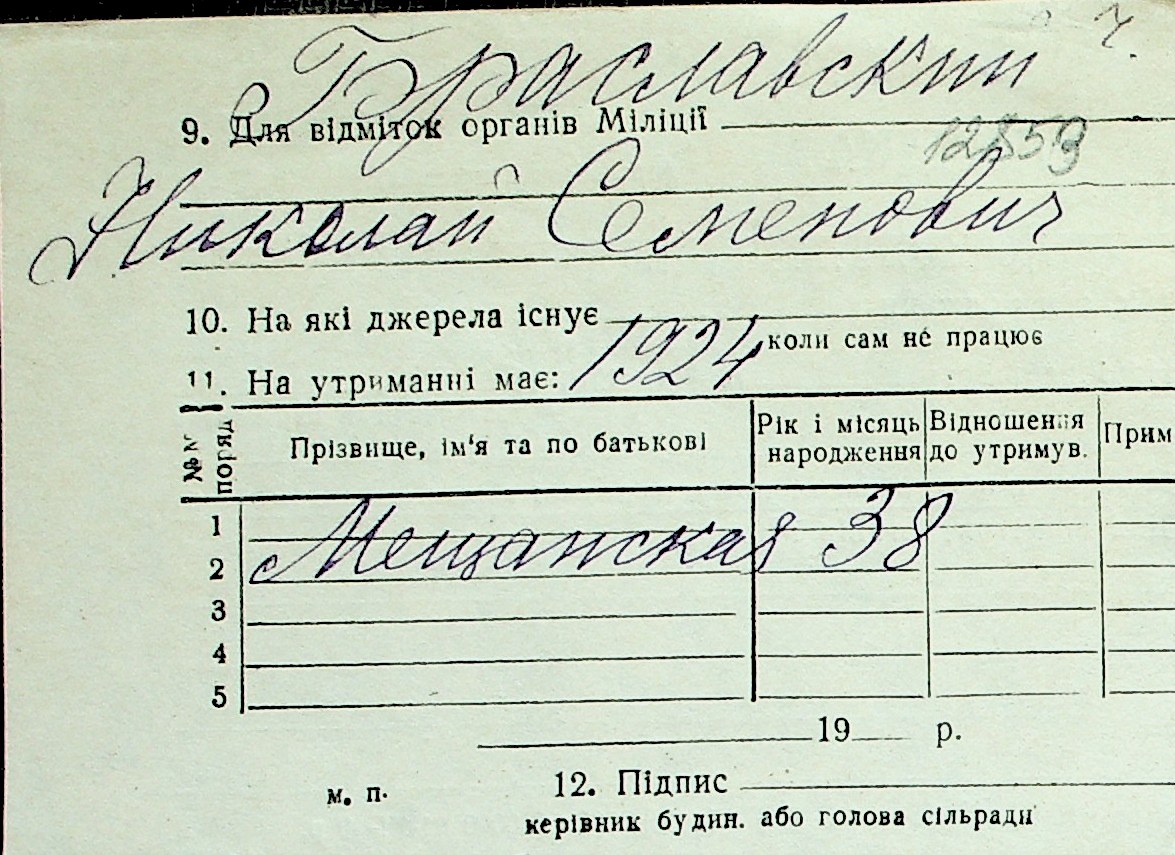 Браславский
9. Для відміток органів Міліції
Николай Семенович
10. На які джерела існує
коли сам не працює
11. На утриманні має: 1924
№№ поряд
Прізвище, ім'я та по батькові
Рік і місяць народження
Відношення до утримув.
Прим
1
Мещанская 38
2
3
4
5
19 р.
м. п.
12. Підпис
керівник будин. або голова сільради